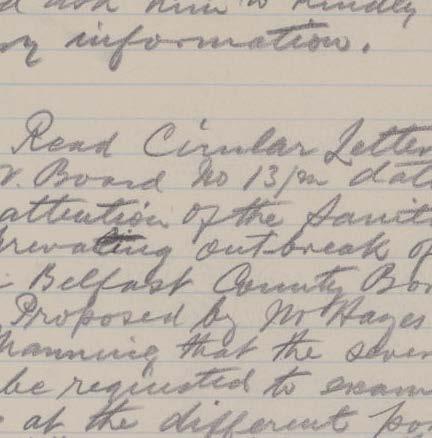 d ask him to kindly
information.
Read Circular Letter
Board No 13/m dat
attention of the Sanit
Prevailing outbreak of
Belfast County Bor
Proposed by Mr Hayes
Manning that the seven
be requested to exam
at the different por